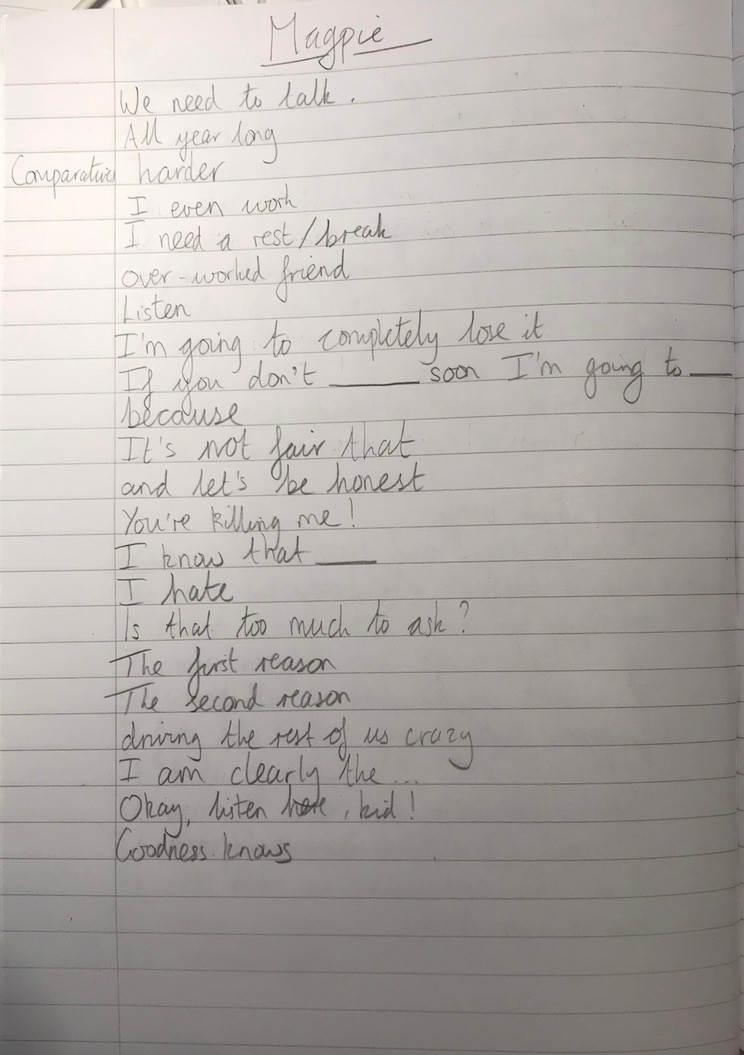 Magpie
We need to talk.
All year long
Comparatives harder
I even work
I need a rest/break
over-worked friend
Listen
I'm going to completely lose it
If you don't ______ soon I'm going to ___
because
It's not fair that
and let's be honest
You're killing me!
I know that ____
I hate
Is that too much to ask?
The first reason
The second reason
driving the rest of us crazy
I am clearly the ...
Okay, listen here, kid!
Goodness knows